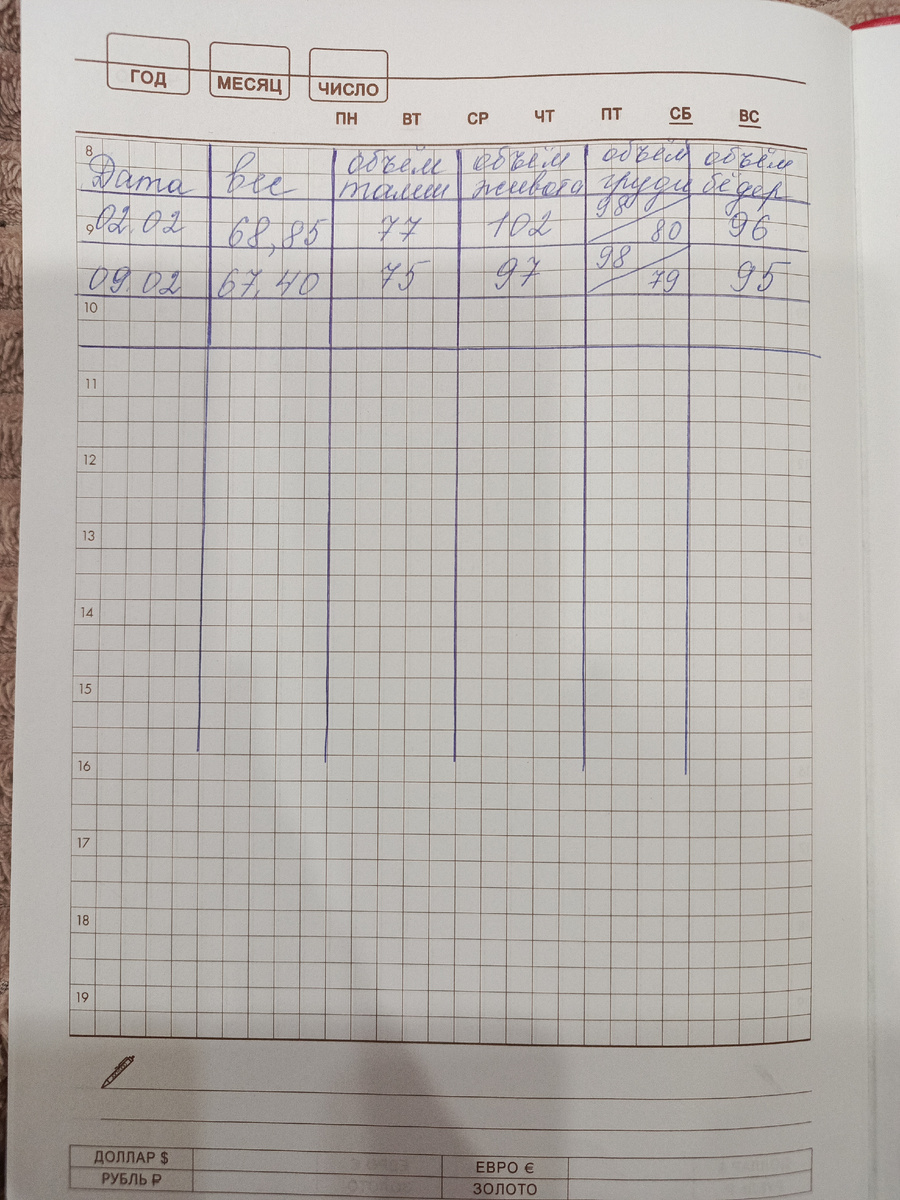 ГОД МЕСЯЦ ЧИСЛО
ПН ВТ СР ЧТ ПТ СБ ВС
8
Дата вес объём талии объём живота объём груди объём бёдер
9
02.02 68,85 77 102 98/80 96
09.02 67,40 75 97 98/79 95
10
11
12
13
14
15
16
17
18
19
ДОЛЛАР $ ЕВРО €
РУБЛЬ ₽ ЗОЛОТО